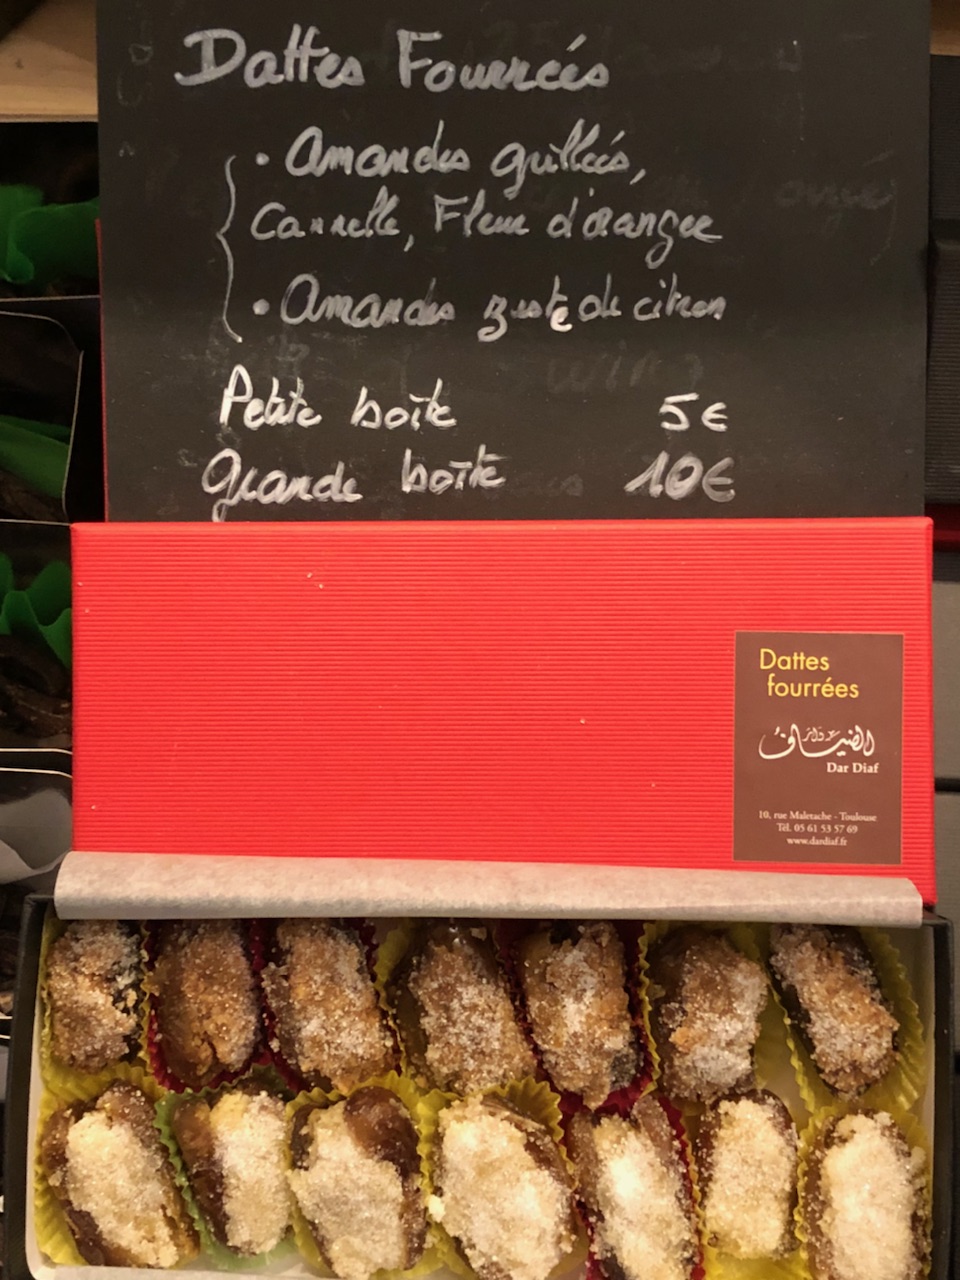 Dattes Fourrées
• Amandes grillées,
Cannelle, Fleur d'oranger
• Amandes zeste de citron
Petite boîte 5€
Grande boîte 10€
Dattes
fourrées
دار الضياف
Dar Diaf
10, rue Maletache - Toulouse
Tél. 05 61 53 57 69
www.dardiaf.fr